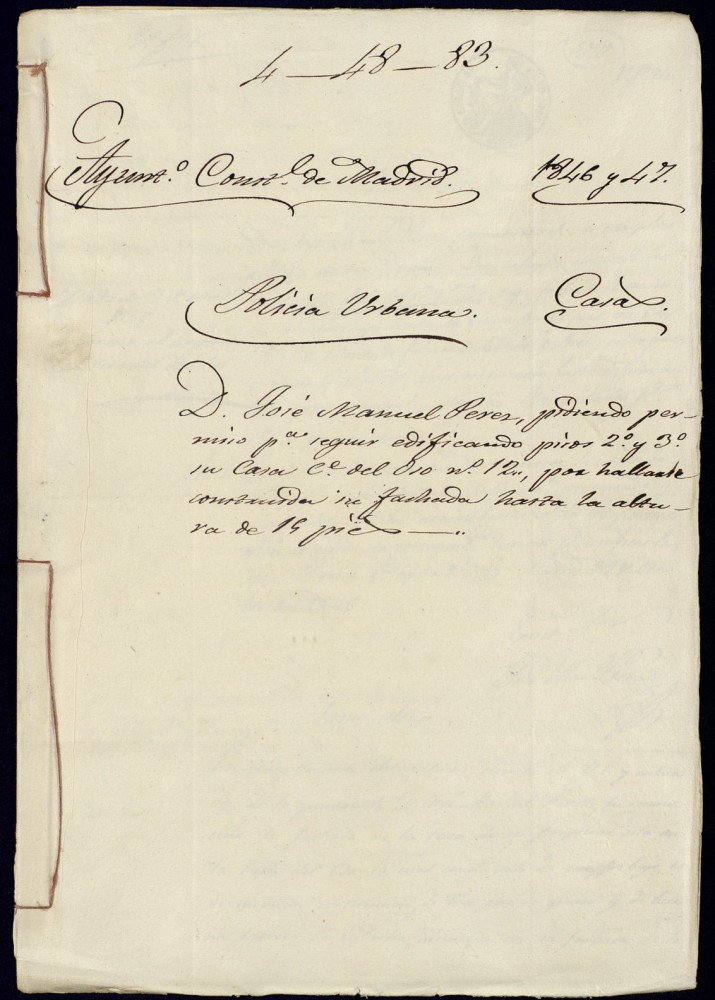 4 — 48 — 83.
Ayunt.º Const.l de Madrid. 1846 y 47.
Policia Urbana. Casas.
D. José Manuel Perez, pidiendo per-
miso p.a seguir edificando pisos 2.º y 3.º
su Casa C.e del Oso n.º 12,, por hallarse
construida su fachada hasta la altu-
ra de 15 pies —..